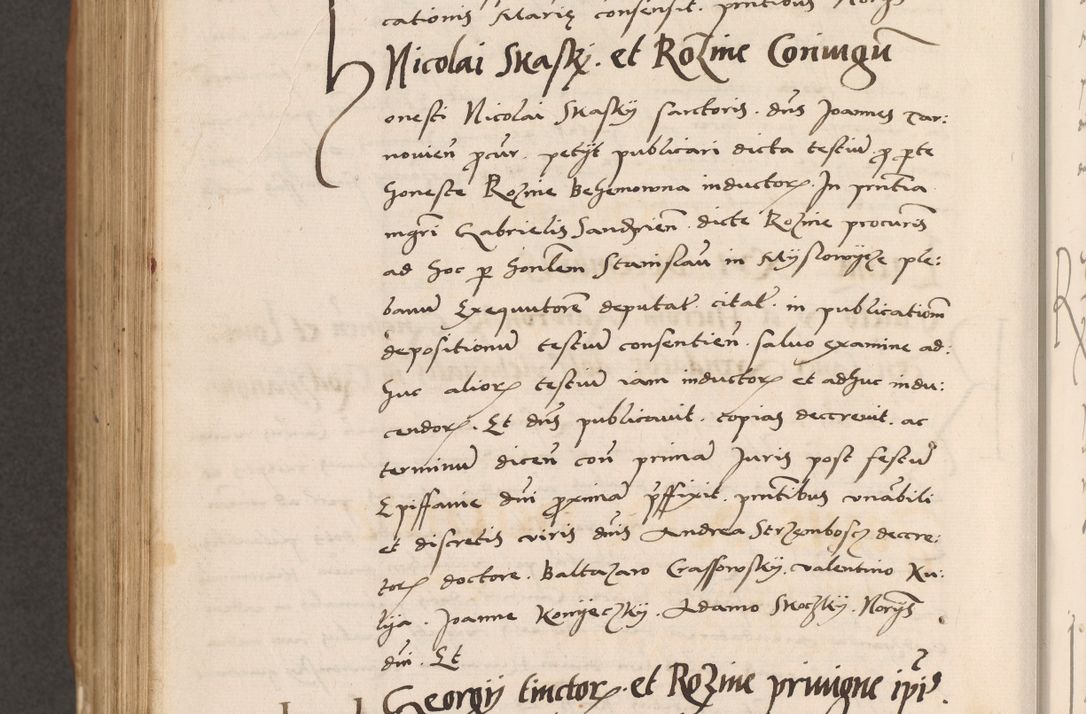 cationis Marię consensit. pntibus Norijs
Nicolai Skasky. et Rozine Coniugū
Honesti Nicolai Skasky sartoris. dns Joannes Tar:
novien procur. petijt publicari dicta testiū pro parte
honeste Rozine Behemowna inductorum. In pntia
mgri Gabrielis Sandzien. dicte Rozine procuris
ad hoc per honlem Stanislaū in Myslowycze ple:
banū Exequutorē deputat. citat. in publicationē
depositionū testiū consentien. salvo examine ad:
huc aliorum testiū iam inductorum et adhuc indu:
cendorum. Et dns publicavit. copias decrevit. ac
terminū dicen con primā Juris post festū
Epiffanie dni proximā prffixit. pntibus vnabili
et discretis viris dnis Andrea Strzembosch decre:
torum doctore. Baltazaro Gassowsky. valentino Ku:
lija. Joanne Konijeczky. Adamo Skoczky. Norijs
dni. Et
Georgij tinctorum. et Rozine privigne ipius.